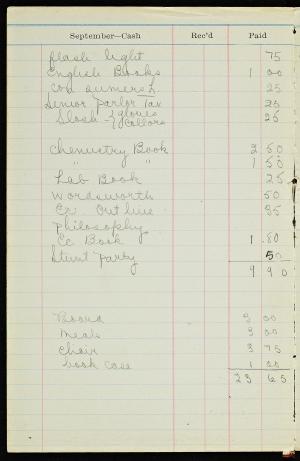 September—Cash Rec'd Paid
flash light 75
English Books 1 00
Consumers L 25
Senior Parlor Tax 25
Slosh - { gloves
Collars 25
Chemistry Book 2 50
" " 1 50
Lab Book 25
Wordsworth 50
Ec. Outline 35
Philosophy
Ec Book 1.80
Stunt Party 50
9 90
Board 3 00
Meals 3 00
Chair 3 75
book case 1 00
23 65